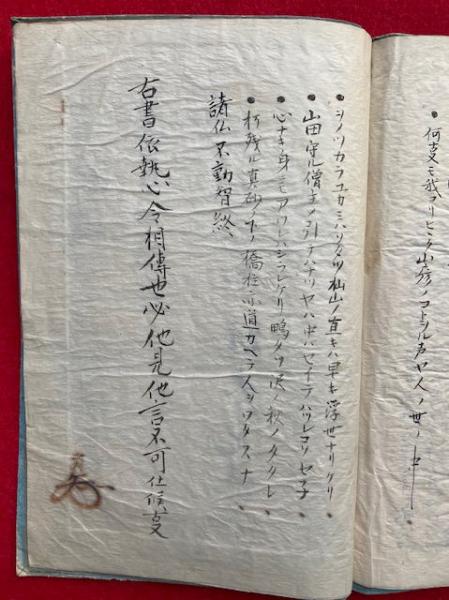 何支モ我ヨリヒヽク山彦ノコトフル声ヤ人ノ世ノ中
ヲノツカラユカミハソタツ杣山ノ直キハ早キ浮世ナリケリ
山田守ル僧主ノ引テハナツヤハ中ハセイテハツレコソセネ
心ナキ身ニモアワレハシラレケリ鴫タツ沢ノ秋ノ夕クレ
朽残ル真砂ノ下ノ橋柱小道カヘテ人ヲワタスナ
諸仏不動智終
右書依執心令相傳也必他見他言不可仕候支